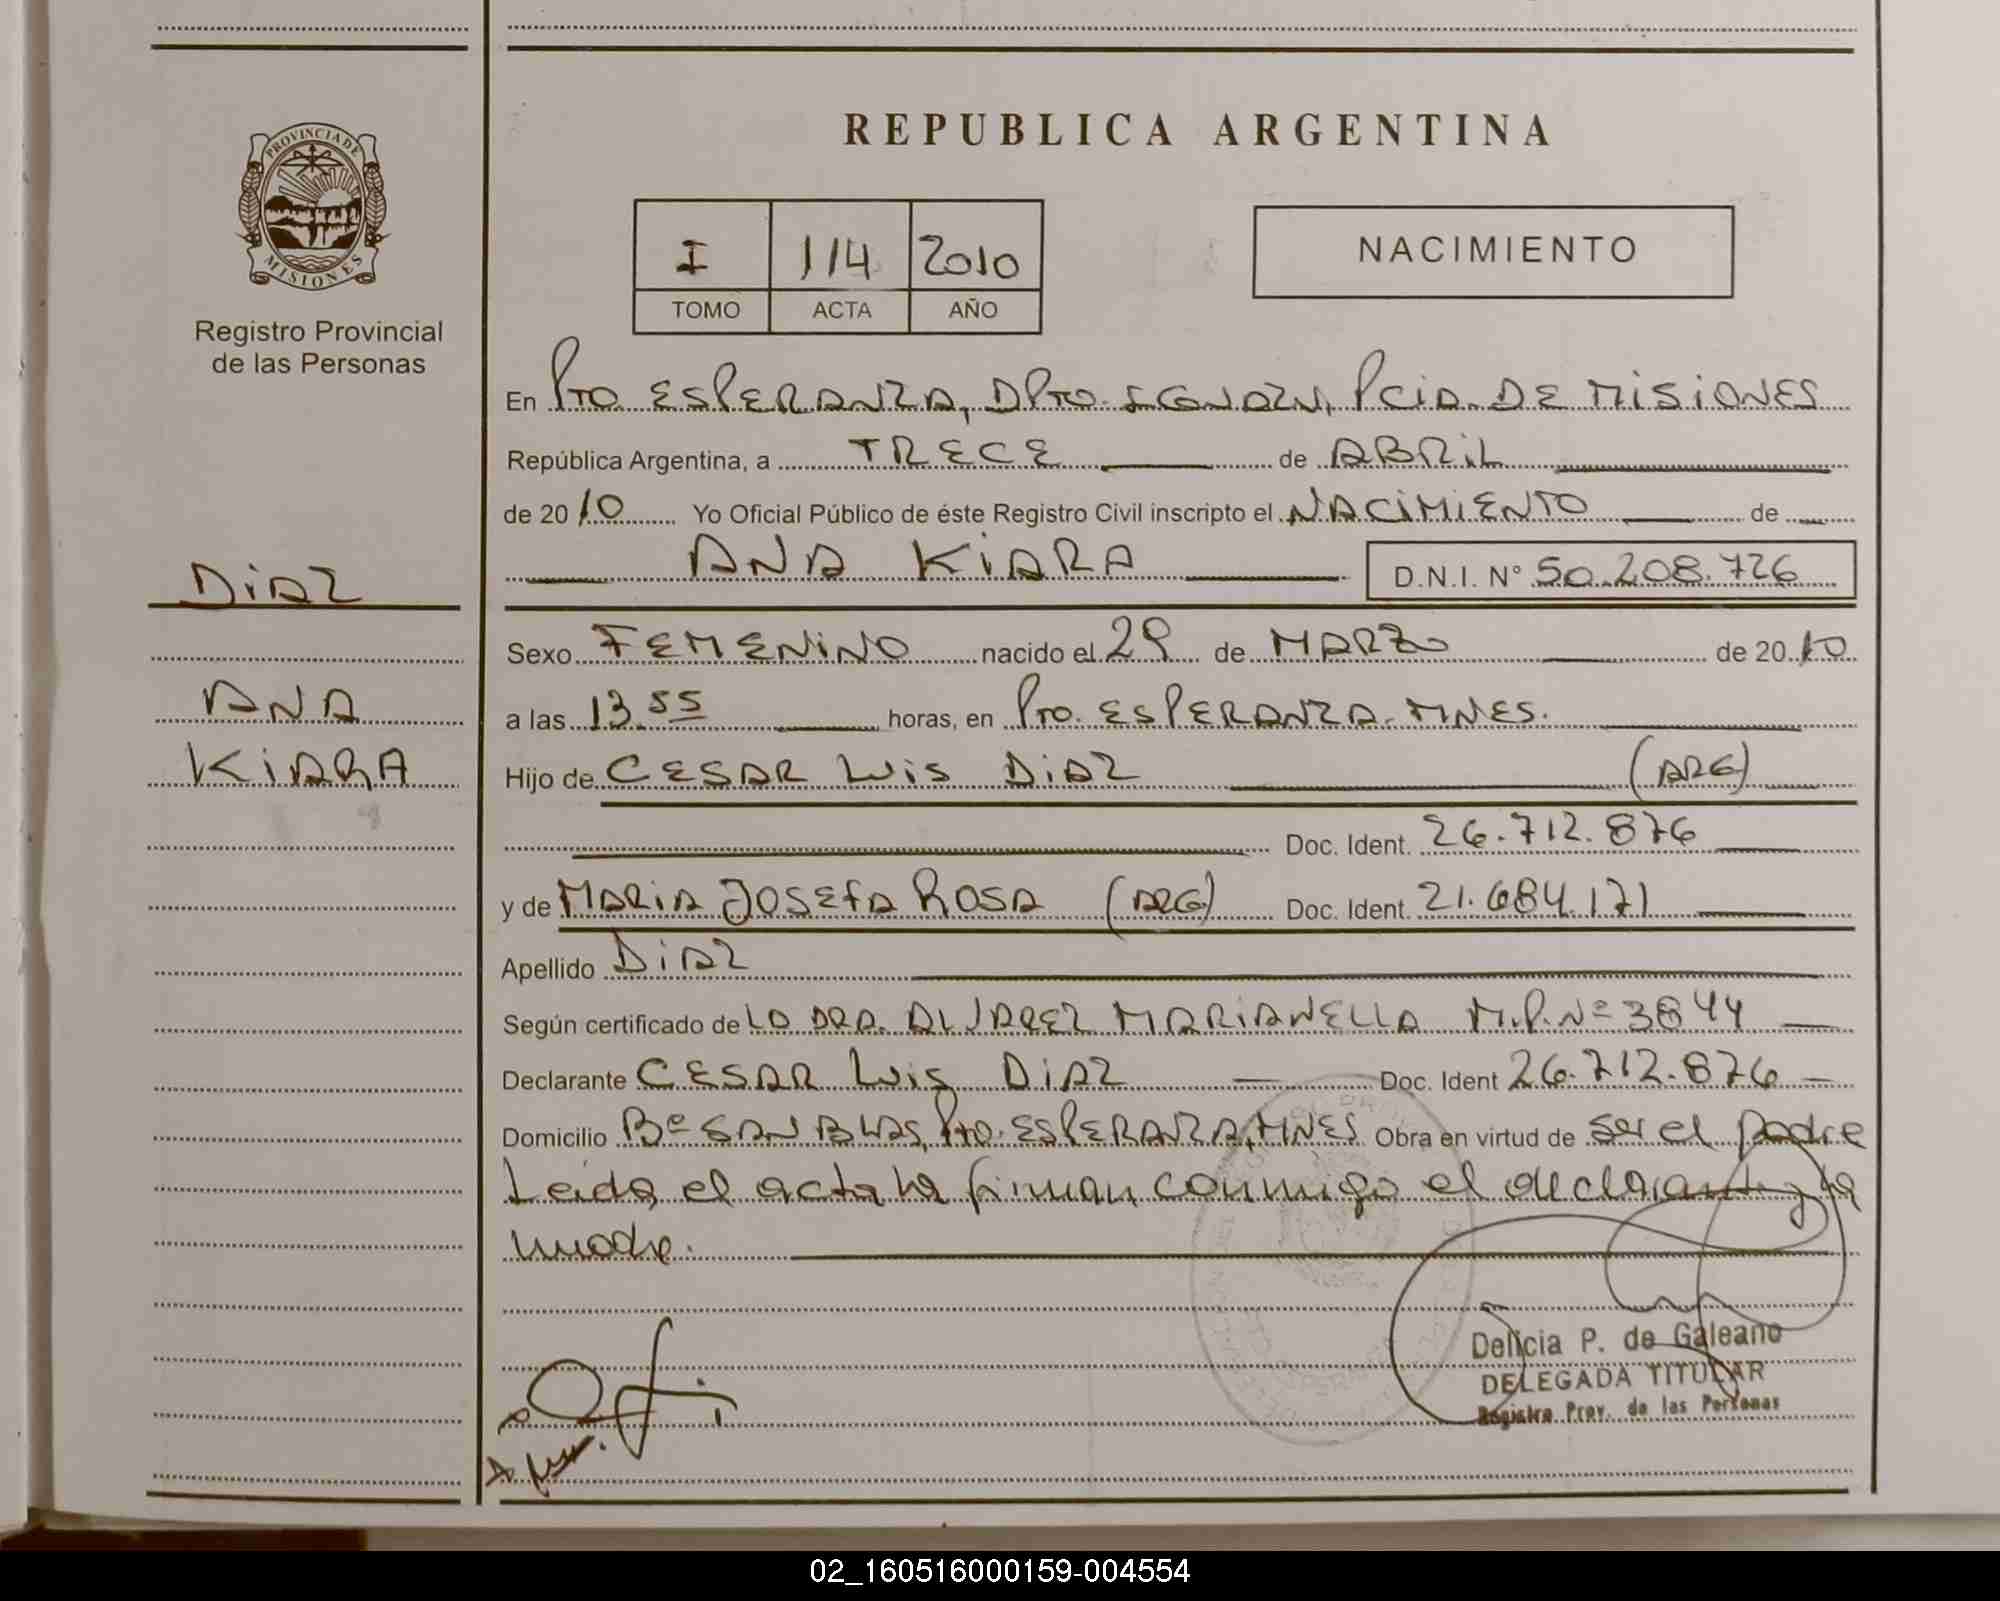 PROVINCIA DE
MISIONES
Registro Provincial
de las Personas
DIAZ
ANA
KIARA
REPUBLICA ARGENTINA
I 114 2010
TOMO ACTA AÑO
NACIMIENTO
En Pto ESPERANZA, DPTO. IGUAZU, PCIA. DE MISIONES
República Argentina, a TRECE de ABRIL
de 2010 Yo Oficial Público de éste Registro Civil inscripto el NACIMIENTO de
ANA KIARA D.N.I. N° 50.208.726
Sexo FEMENINO nacido el 29 de MARZO de 2010
a las 13.55 horas, en Pto. ESPERANZA - MNES.
Hijo de CESAR LUIS DIAZ (ARG)
Doc. Ident. 26.712.876
y de MARIA JOSEFA ROSA (ARG) Doc. Ident. 21.684.171
Apellido DIAZ
Según certificado de LA DRA. ALVAREZ MARIANELLA M.P. Nº 3844
Declarante CESAR LUIS DIAZ Doc. Ident 26.712.876
Domicilio Bº SAN BLAS, Pto. ESPERANZA, MNES Obra en virtud de ser el padre
Leida el acta la firman conmigo el declarante y la
madre.
Delicia P. de Galeano
DELEGADA TITULAR
Registro Prov. de las Personas
02_160516000159-004554